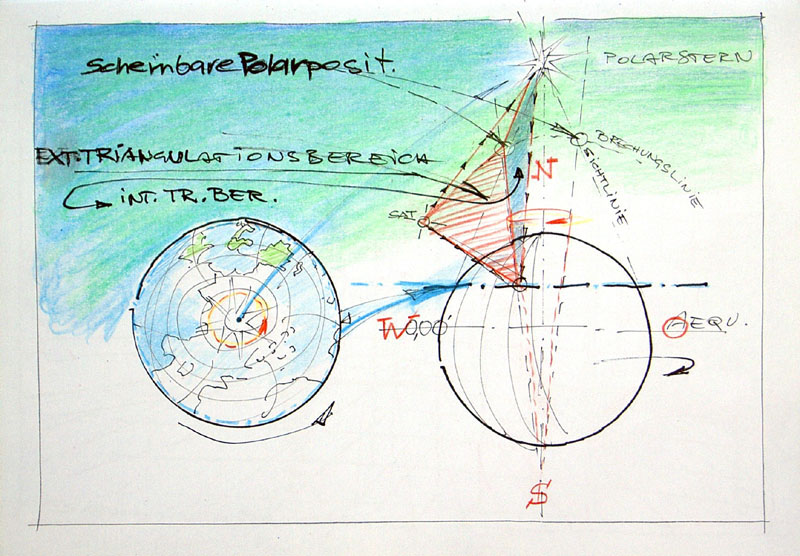 Scheinbare Polarposit.
POLARSTERN
EXT. TRIANGULATIONSBEREICH
INT. TR. BER.
BRECHUNGSLINIE
SICHTLINIE
N
SAT
W 0,00'
AEQU.
S